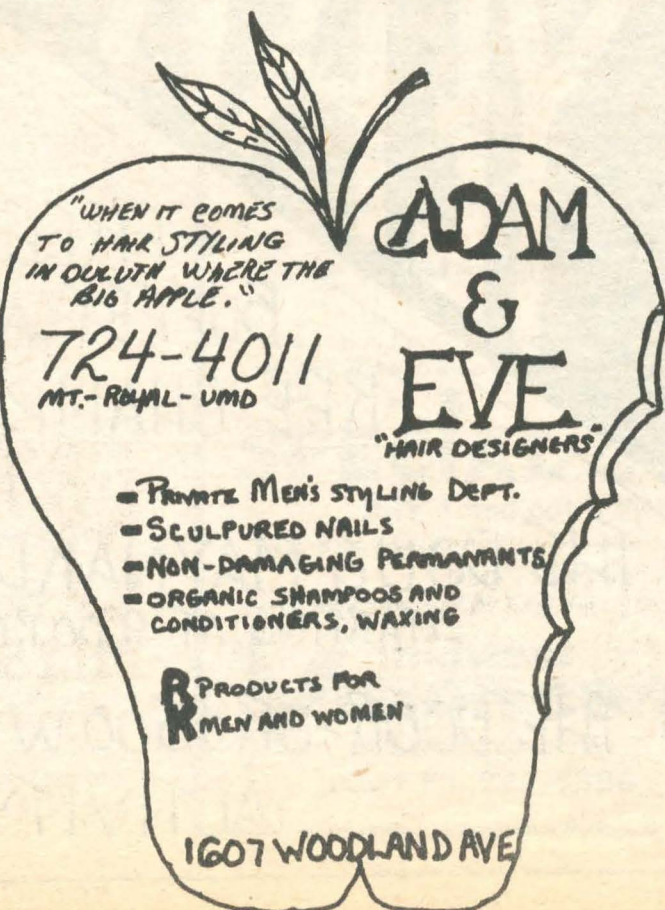 "WHEN IT COMES
TO HAIR STYLING
IN DULUTH WHERE THE
BIG APPLE."
724-4011
MT.-ROYAL-UMD
ADAM
&
EVE
"HAIR DESIGNERS"
PRIVATE MEN'S STYLING DEPT.
SCULPURED NAILS
NON-DAMAGING PERMANANTS
ORGANIC SHAMPOOS AND
CONDITIONERS, WAXING
R PRODUCTS FOR
K MEN AND WOMEN
1607 WOODLAND AVE